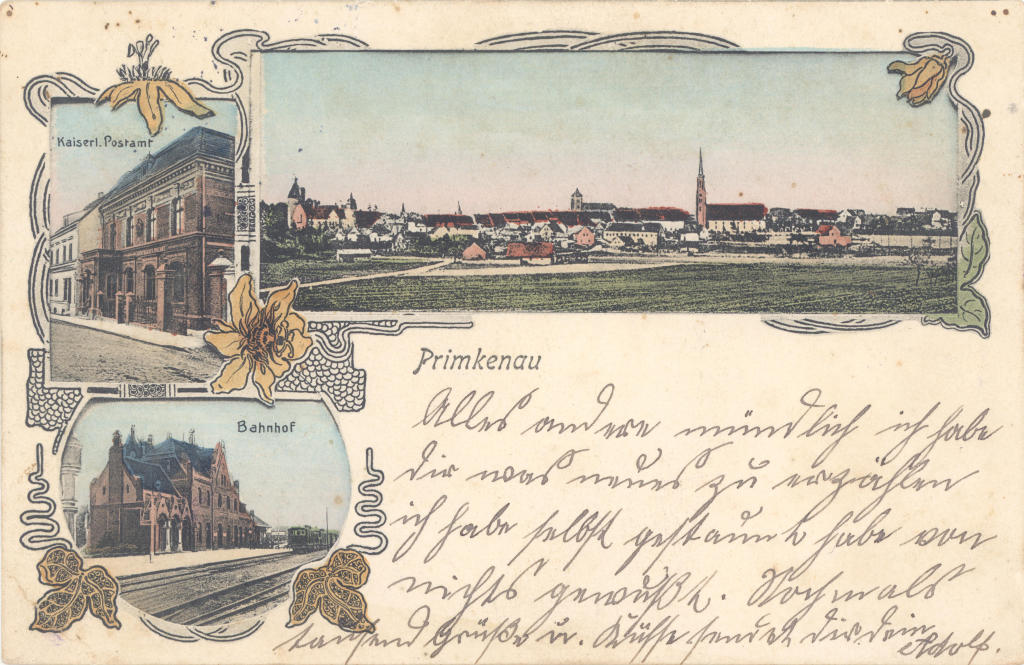 Kaiserl. Postamt
Primkenau
Bahnhof
Alles andere mündlich ich habe
dir was neues zu erzählen
ich habe selbst gestaunt habe von
nichts gewußt. Nochmals
tausend Grüße u. Küsse sendet dir dein
Adolf.